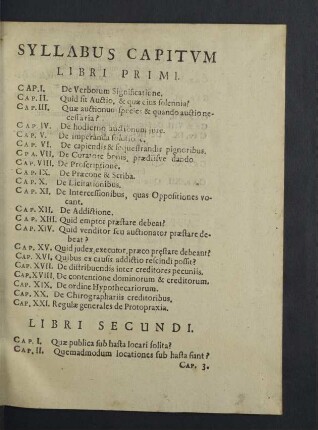 SYLLABUS CAPITVM
LIBRI PRIMI.
CAP. I. De Verborum Significatione.
CAP. II. Quid sit Auctio, & quæ eius solennia?
CAP. III. Quæ auctionum species & quando auctio ne-
cessaria?
CAP. IV. De hodierno auctionum iure.
CAP. V. De imperanda subhastat.
CAP. VI. De capiendis & sequestrandis pignoribus.
CAP. VII. De Curatore bonis, prædiisve dando.
CAP. VIII. De Proscriptione.
CAP. IX. De Præcone & Scriba.
CAP. X. De Licitationibus.
CAP. XI. De Intercessionibus, quas Oppositiones vo-
cant.
CAP. XII. De Addictione.
CAP. XIII. Quid emptor præstare debeat?
CAP. XIV. Quid venditor seu auctionator præstare de-
beat?
CAP. XV. Quid judex, executor, præco præstare debeant?
CAP. XVI. Quibus ex causis addictio rescindi possit?
CAP. XVII. De distribuendis inter creditores pecuniis.
CAP. XVIII. De contentione dominorum & creditorum.
CAP. XIX. De ordine Hypothecariorum.
CAP. XX. De Chirographariis creditoribus.
CAP. XXI. Regulæ generales de Protopraxia.
LIBRI SECUNDI.
CAP. I. Quæ publica sub hasta locari solita?
CAP. II. Quemadmodum locationes sub hasta fiant?
CAP. 3.